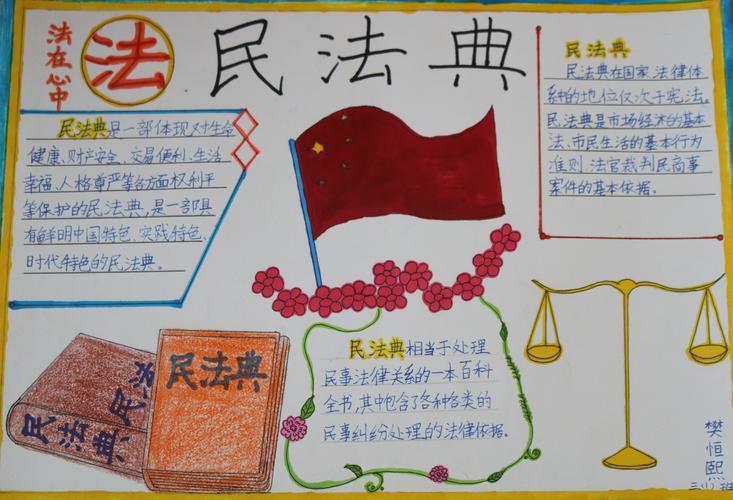 法在心中
法
民法典
民法典是一部体现对生命
健康、财产安全、交易便利、生活
幸福、人格尊严等各方面权利平
等保护的民法典，是一部具
有鲜明中国特色、实践特色、
时代特色的民法典。
民法典
民法典在国家法律体
系中的地位仅次于宪法。
民法典是市场经济的基本
法、市民生活的基本行为
准则，法官裁判民商事
案件的基本依据。
民法典
民法典
民法
民法典相当于处理
民事法律关系的一本百科
全书，其中包含了各种各类的
民事纠纷处理的法律依据。
樊恒熙